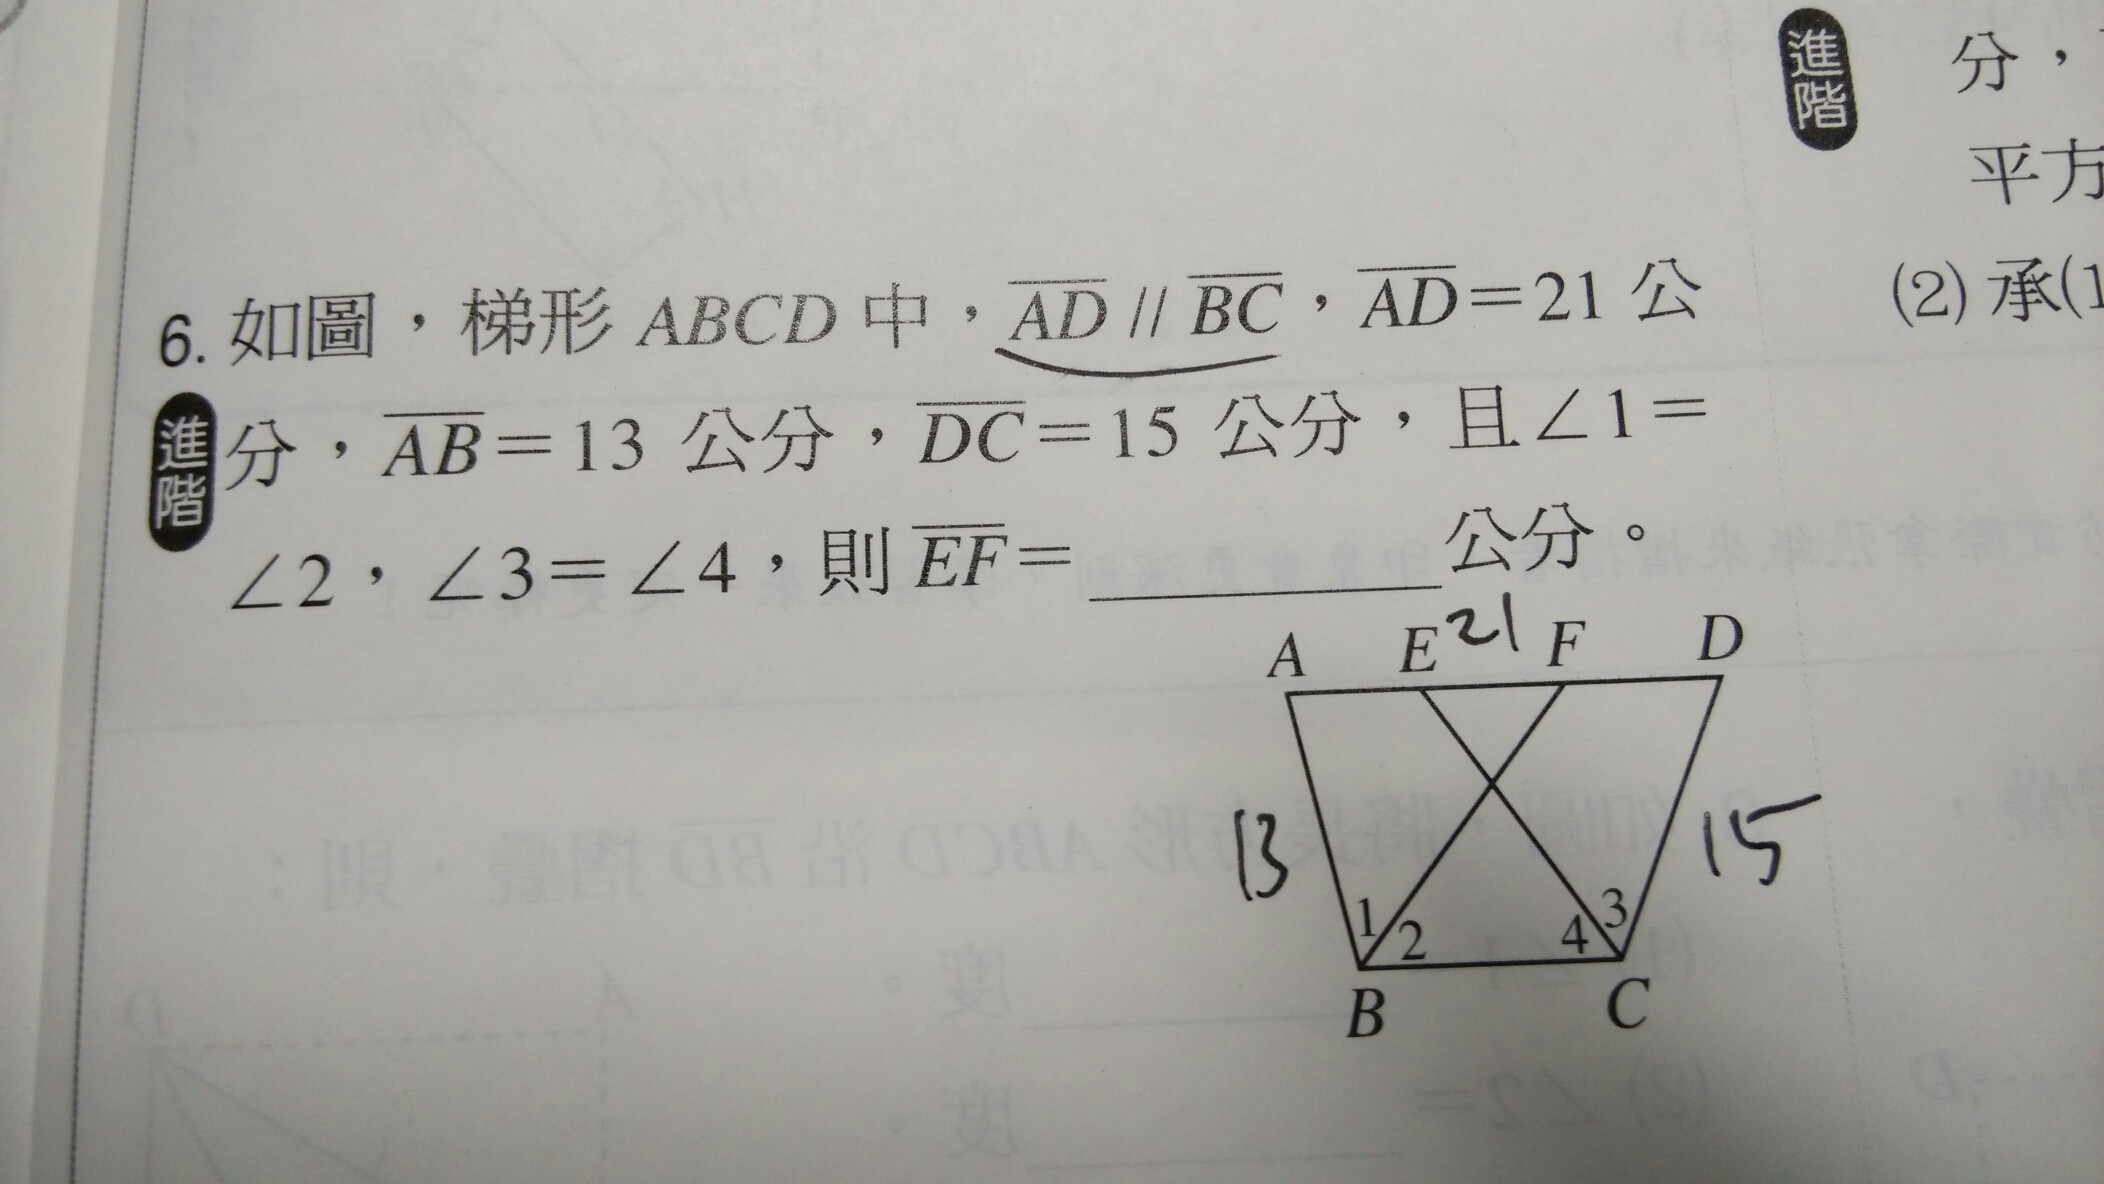 6. 如圖，梯形 ABCD 中，AD // BC，AD=21 公
分，AB=13 公分，DC=15 公分，且∠1=
∠2，∠3=∠4，則 EF=________公分。
進階
A E 21 F D
13
15
1 2 4 3
B C
進階
分，
平方
(2) 承(1